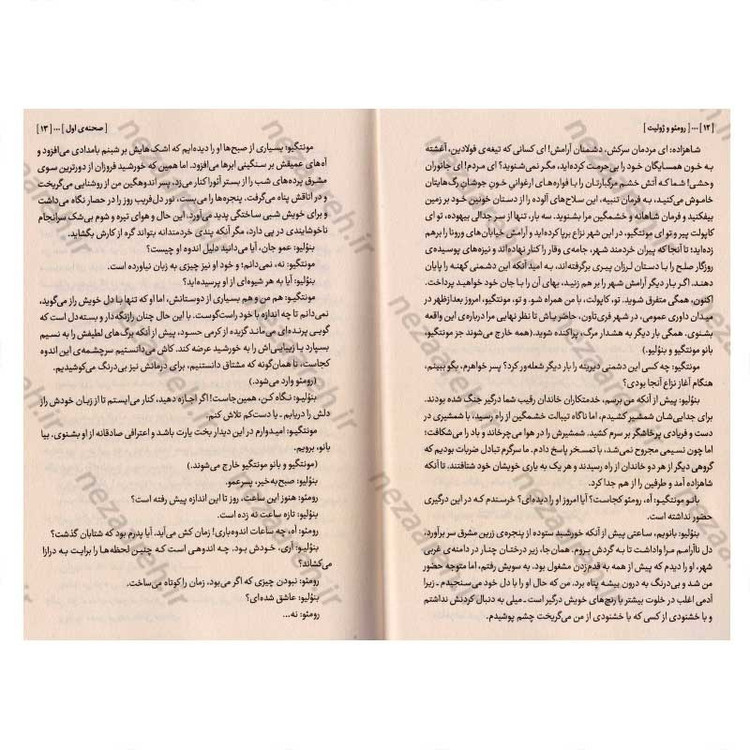 [۱۲] ... [ رومئو و ژولیت ]
شاهزاده: ای مردمان سرکش، دشمنان آرامش! ای کسانی که تیغه‌ی فولادین، آغشته
به خون همسایگان خود را بی‌حرمت کرده‌اید، مگر نمی‌شنوید؟ ای مردم! ای جانوران
وحشی! شما که آتش خشم مرگبارتان را با فواره‌های ارغوانی خونِ جوشانِ رگ‌هایتان
خاموش می‌کنید، به فرمان تنبیه، این سلاح‌های آلوده را از دستان خونین خود بر زمین
بیفکنید و فرمان شاهانه و خشمگین مرا بشنوید. سه بار، تنها از سر جدالی بیهوده، تو ای
کاپولت پیر و تو ای مونتگیو، در این شهر نزاع برپا کرده‌اید و آرامش خیابان‌های ورونا را برهم
زده‌اید؛ تا آنجا که پیران خردمند شهر، جامه‌ی وقار را کنار نهاده‌اند و نیزه‌های پوسیده‌ی
روزگار صلح را با دستان لرزان پیری برگرفته‌اند، به امید آنکه این دشمنی کهنه را پایان
دهند. اگر بار دیگر آرامش شهر را بر هم زنید، بهای آن را با جان خود خواهید پرداخت.
اکنون، همگی متفرق شوید. تو، کاپولت، با من همراه شو. و تو، مونتگیو، امروز بعدازظهر در
میدان داوری عمومی، در شهر فری‌تاون، حاضر باش تا نظر نهایی مرا درباره‌ی این واقعه
بشنوی. همگی بار دیگر به هشدار مرگ، پراکنده شوید. (همه خارج می‌شوند جز مونتگیو،
بانو مونتگیو و بنوُلیو.)
مونتگیو: چه کسی این دشمنی دیرینه را بار دیگر شعله‌ور کرد؟ پسر خواهرم، بگو ببینم،
هنگام آغاز نزاع آنجا بودی؟
بنوُلیو: پیش از آنکه من برسم، خدمتکاران خاندان رقیب شما درگیر جنگ شده بودند.
برای جدایی‌شان شمشیر کشیدم، اما ناگاه تیبالت خشمگین از راه رسید، با شمشیری در
دست و فریادی پرخاشگر بر سرم کشید. شمشیرش را در هوا می‌چرخاند و باد را می‌شکافت؛
اما چون نسیمی مجروح نمی‌شد، با تمسخر پاسخ دادم. ما سرگرم تبادل ضربات بودیم که
گروهی دیگر از هر دو خاندان از راه رسیدند و هر یک به یاری خویشان خود شتافتند، تا آنکه
شاهزاده آمد و طرفین را از هم جدا کرد.
بانو مونتگیو: آه، رومئو کجاست؟ آیا امروز او را دیده‌ای؟ خرسندم که در این درگیری
حضور نداشته است.
بنوُلیو: بانویم، ساعتی پیش از آنکه خورشید ستوده از پنجره‌ی زرین مشرق سر برآورد،
دل ناآرامم مرا واداشت تا به گردش بروم. همان جا، زیر درختان چنار در دامنه‌ی غربی
شهر، او را دیدم که پیش از همه به قدم‌زدن مشغول بود. به سویش رفتم، اما متوجه حضور
من شد و بی‌درنگ به درون بیشه پناه برد. من که حال او را با دل خود می‌سنجیدم ـ زیرا
آدمی اغلب در خلوت بیشتر با رنج‌های خویش درگیر است ـ میلی به دنبال کردنش نداشتم
و با خشنودی از کسی که با خشنودی از من می‌گریخت چشم پوشیدم.
[ صحنه‌ی اول ] ... [۱۳]
مونتگیو: بسیاری از صبح‌ها او را دیده‌ایم که اشک‌هایش بر شبنم بامدادی می‌افزود و
آه‌های عمیقش بر سنگینی ابرها می‌افزود. اما همین که خورشید فروزان از دورترین سوی
مشرق پرده‌های شب را از بستر آئورا کنار می‌زد، پسر اندوهگین من از روشنایی می‌گریخت
و در اتاقش پناه می‌گرفت. پنجره‌ها را می‌بست، نور دل‌فریب روز را در حصار نگاه می‌داشت
و برای خویش شبی ساختگی پدید می‌آورد. این حال و هوای تیره و شوم بی‌شک سرانجام
ناخوشایندی در پی دارد، مگر آنکه پندی خردمندانه بتواند گره از کارش بگشاید.
بنوُلیو: عمو جان، آیا می‌دانید دلیل اندوه او چیست؟
مونتگیو: نه، نمی‌دانم؛ و خود او نیز چیزی به زبان نیاورده است.
بنوُلیو: آیا به هر شیوه‌ای از او پرسیده‌اید؟
مونتگیو: هم من و هم بسیاری از دوستانش، اما او که تنها با دل خویش راز می‌گوید،
نمی‌دانم تا چه اندازه با خود راست‌گوست. با این حال چنان رازنگه‌دار و بسته‌دل است که
گویی پرنده‌ای می‌ماند گزیده از کرمی حسود، پیش از آنکه برگ‌های لطیفش را به نسیم
بسپارد یا زیبایی‌اش را به خورشید عرضه کند. کاش می‌دانستیم سرچشمه‌ی این اندوه
کجاست، تا همان‌گونه که مشتاق دانستنیم، برای درمانش نیز بی‌درنگ می‌کوشیدیم.
(رومئو وارد می‌شود.)
بنوُلیو: نگاه کن، همین‌جاست! اگر اجازه دهید، کنار می‌ایستم تا از زبان خودش راز
دلش را دریابم ـ یا دست‌کم تلاش کنم.
مونتگیو: امیدوارم در این دیدار بخت یارت باشد و اعترافی صادقانه از او بشنوی. بیا
بانو، برویم.
(مونتگیو و بانو مونتگیو خارج می‌شوند.)
بنوُلیو: صبح‌به‌خیر، پسرعمو.
رومئو: هنوز این ساعت، روز تا این اندازه پیش رفته است؟
بنوُلیو: تازه ساعت نه زده است.
رومئو: آه، چه ساعات اندوه‌باری! زمان کش می‌آید. آیا پدرم بود که شتابان گذشت؟
بنوُلیو: آری، خودش بود. چه اندوهی است که چنین لحظه‌ها را برایت به درازا
می‌کشاند؟
رومئو: نبودن چیزی که اگر می‌بود، زمان را کوتاه می‌ساخت.
بنوُلیو: عاشق شده‌ای؟
رومئو: نه...
nezaareh.ir